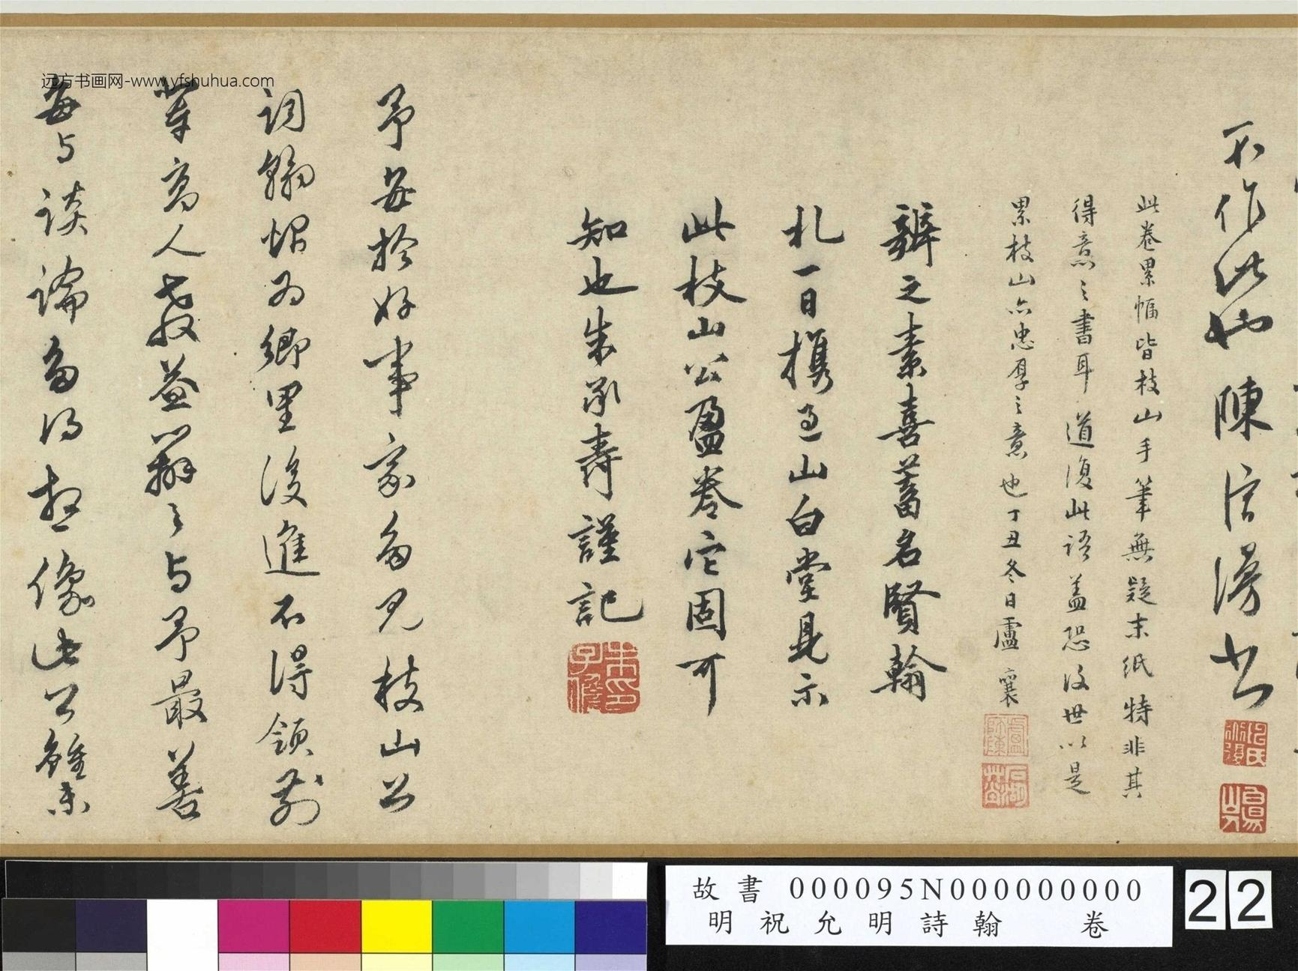 不作此如陳淳漫書
此卷累幅皆枝山手筆無疑末紙特非其
得意之書耳道復此語蓋恐後世以是
累枝山亦忠厚之意也丁丑冬日盧襄
辭之素喜蓄名賢翰
札一日携過山白堂見示
此枝山公盈卷它固可
知也朱承壽謹記
予每於好事家多見枝山公
詞翰惜為鄉里後進不得領前
輩高人教益辭之与予最善
每与談論多得想像此公雖未
远方书画网-www.yfshuhua.com
故書 000095N000000000
明祝允明詩翰 卷
22